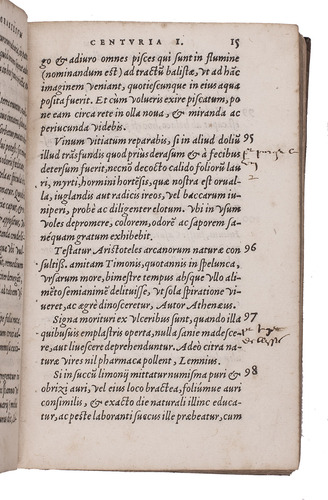 CENTVRIA I. 15
go & adiuro omnes pisces qui sunt in flumine
(nominandum est) ad tractū balistæ, vt ad hāc
imaginem veniant, quotiescunque in eius aqua
posita fuerit. Et cum volueris exire piscatum, po
ne eam circa rete in olla noua, & miranda ac
periucunda videbis.
Vinum vitiatum reparabis, si in aliud doliū 95
illud trāsfundis quod prius derasum & à fecibus
detersum fuerit, necnō decocto calido foliorū lau
ri, myrti, hormini hortēsis, quæ nostra est orual-
la, iuglandis aut radicis ireos, vel baccarum iu-
niperi, probè ac diligenter elotum. Vbi in vsum
voles depromere, colorem, odorē ac saporem sa-
nè quàm gratum exhibebit.
Testatur Aristoteles arcanorum naturæ con 96
sultiss. amitam Timonis, quotannis in spelunca,
vrsarum more, bimestre tempus absque vllo ali-
mēto semianimē delituisse, vt sola spiratione vi-
ueret, ac ægrè dinosceretur, Autor Athenæus.
Signa morituri ex vlceribus sunt, quando illa 97
quibusuis emplastris operta, nulla sanie madesce-
re, aut liuescere deprehenduntur. Adeò citra na-
turæ vires nil pharmaca pollent, Lemnius.
Si in succū limonij mittatur numisma puri & 98
obrizi auri, vel eius loco bractea, foliúmue auri
consimilis, & exacto die naturali illinc educa-
tur, ac peste laboranti succus ille præbeatur, cum